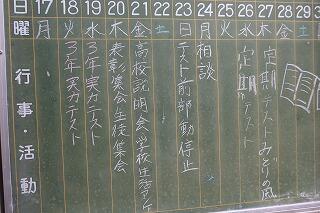 日 17 18 19 20 21 22 23 24 25 26 27 28 29
曜 月 火 水 木 金 土 日 月 火 水 木 金 土
行事・活動
3年実力テスト
3年実力テスト
表彰集会生徒集会
高校説明会学校生活アンケ
テスト前部動停止
相談
定期テスト
定期テストみどりの風